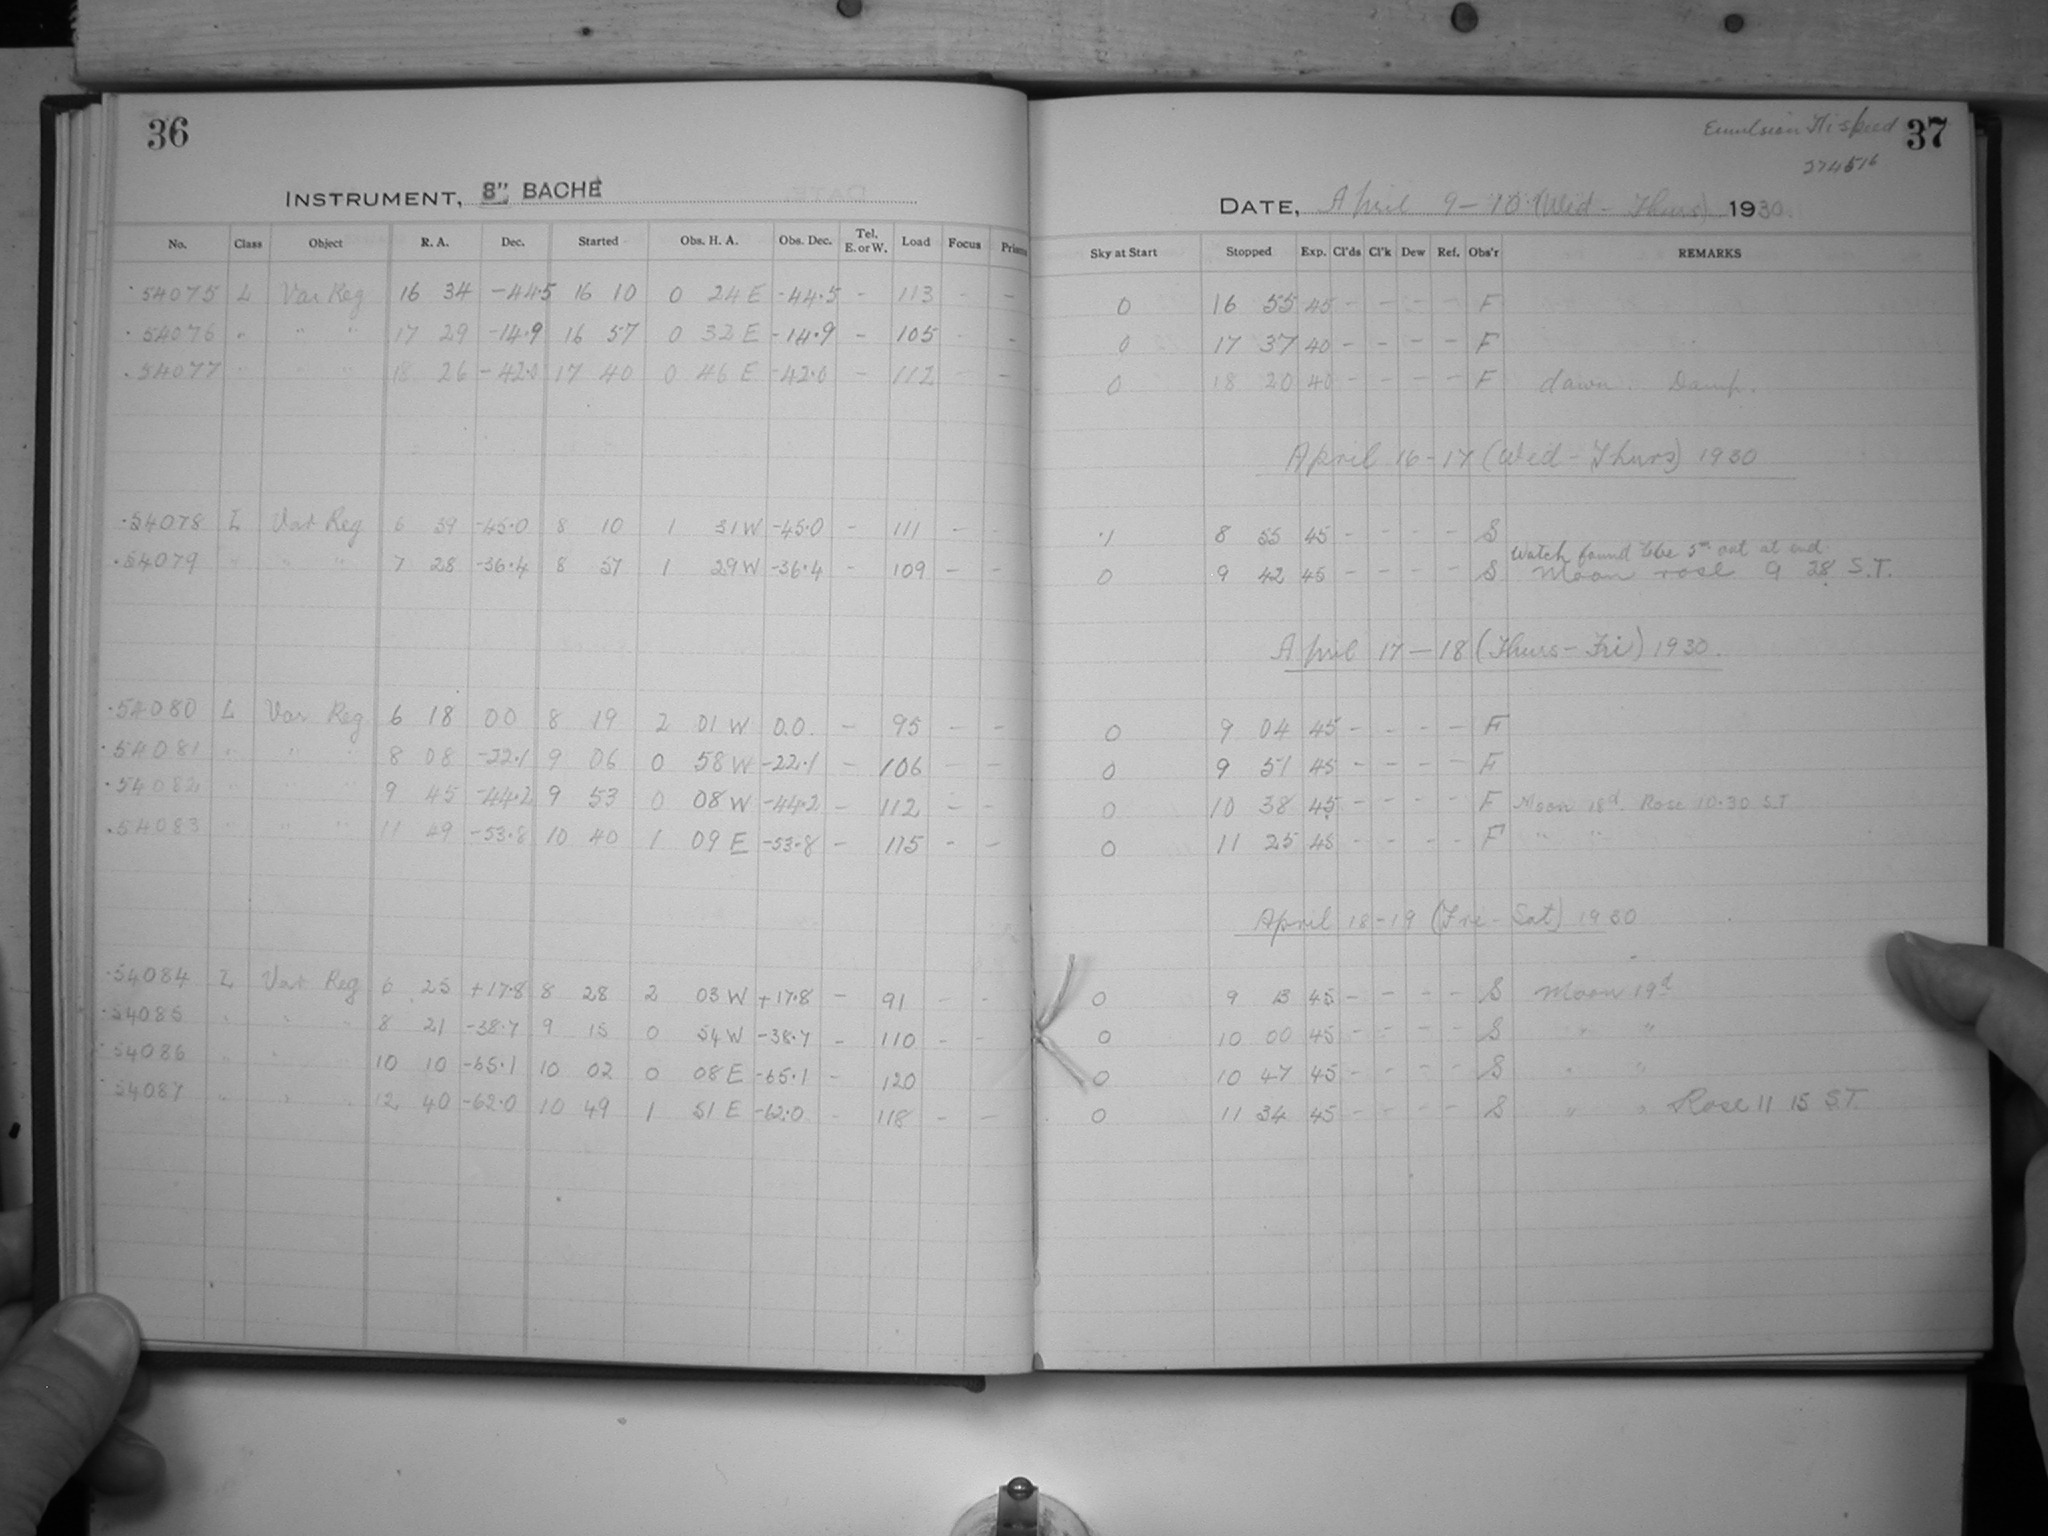 36
INSTRUMENT, 8" BACHE
No. Class Object R. A. Dec. Started Obs. H. A. Obs. Dec. Tel. E. or W. Load Focus Prisms
54075 L Var Reg 16 34 -44.5 16 10 0 24 E -44.5 - 113 - -
54076 " " " 17 29 -14.9 16 57 0 32 E -14.9 - 105 - -
54077 " " " 18 26 -42.0 17 40 0 46 E -42.0 - 112 - -
54078 L Var Reg 6 39 -45.0 8 10 1 31 W -45.0 - 111 - -
54079 " " " 7 28 -36.4 8 57 1 29 W -36.4 - 109 - -
54080 L Var Reg 6 18 00 8 19 2 01 W 0.0. - 95 - -
54081 " " " 8 08 -22.1 9 06 0 58 W -22.1 - 106 - -
54082 " " " 9 45 -44.2 9 53 0 08 W -44.2 - 112 - -
54083 " " " 11 49 -53.8 10 40 1 09 E -53.8 - 115 - -
54084 L Var Reg 6 25 +17.8 8 28 2 03 W +17.8 - 91 - -
54085 " " " 8 21 -38.7 9 15 0 54 W -38.7 - 110 - -
54086 " " " 10 10 -65.1 10 02 0 08 E -65.1 - 120
54087 " " " 12 40 -62.0 10 49 1 51 E -62.0 - 118 - -
Emulsion Hispeed 37
274516
DATE, April 9-10 (Wed - Thurs) 1930.
Sky at Start Stopped Exp. Cl'ds Cl'k Dew Ref. Obs'r REMARKS
0 16 55 45 - - - - F
0 17 37 40 - - - - F
0 18 20 40 - - - - F dawn. Damp.
April 16-17 (Wed - Thurs) 1930
.1 8 55 45 - - - - S
Watch found to be 5m out at end.
0 9 42 45 - - - - S Moon rose 9 28 S.T.
April 17-18 (Thurs - Fri) 1930.
0 9 04 45 - - - - F
0 9 51 45 - - - - F
0 10 38 45 - - - - F Moon 18d. Rose 10.30 S.T
0 11 25 45 - - - - F " "
April 18-19 (Fri - Sat) 1930
0 9 13 45 - - - - S Moon 19d
0 10 00 45 - - - - S " "
0 10 47 45 - - - - S " "
0 11 34 45 - - - - S " " Rose 11 15 S.T.